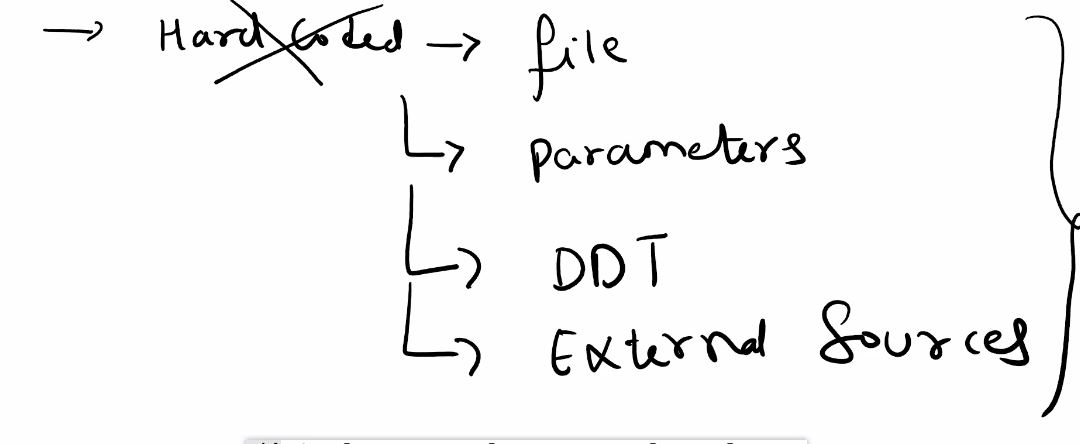 → Hard Coded → file
↳ Parameters
↳ DDT
↳ External Sources